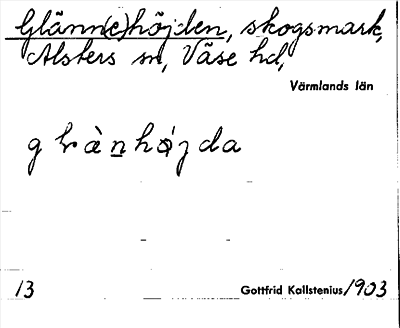 Glänn(e)höjden, skogsmark,
Alsters sn, Väse hd,
Värmlands län
13
Gottfrid Kallstenius 1903